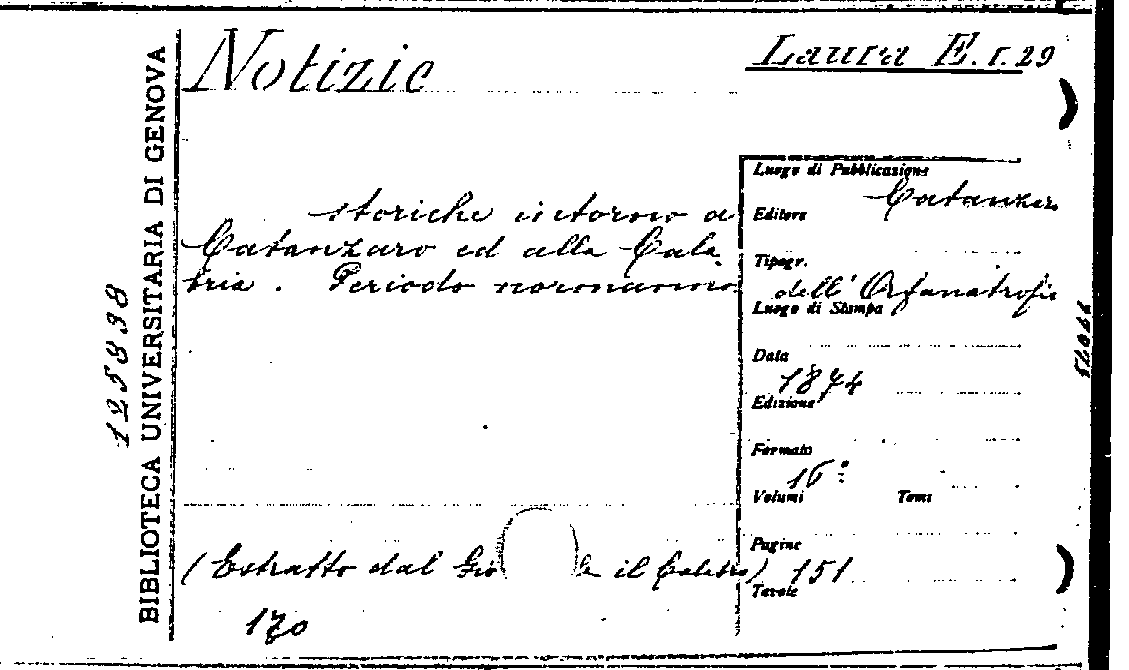 Notizie
Laura E. 1.29
storiche intorno a
Catanzaro ed alla Cala
bria. Periodo normanno
(Estratto dal Gio le il Calabro)
170
Luogo di Pubblicazione
Catanzaro
Editore
Tipogr.
dell' Orfanatrofio
Luogo di Stampa
Data
1874
Edizione
Formato
16º
Volumi Tomi
Pagine
151
Tavole
BIBLIOTECA UNIVERSITARIA DI GENOVA
125838